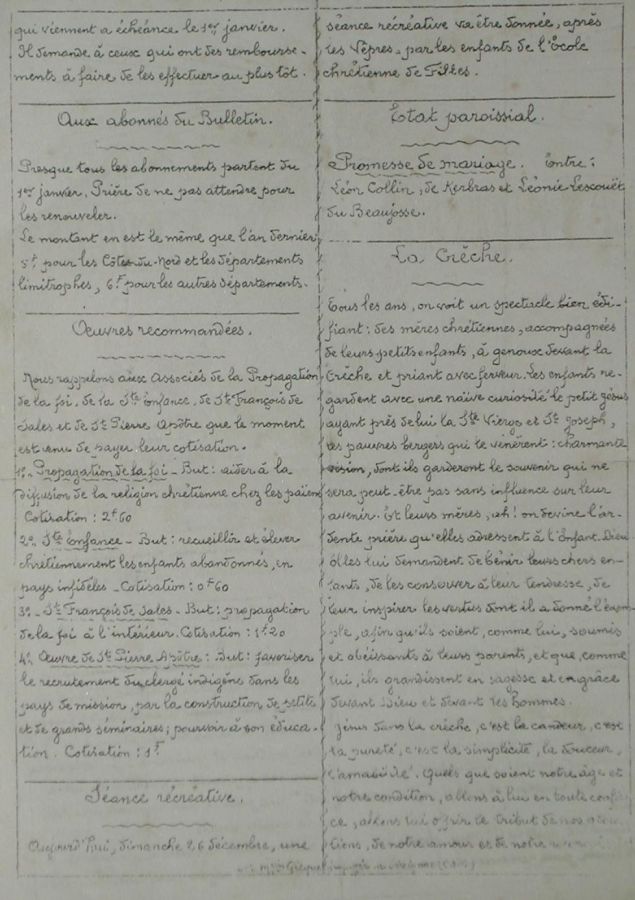 qui viennent a échéance le 1er janvier.
Il demande à ceux qui ont des rembourse-
ments à faire de les effectuer au plus tôt.
Aux abonnés du Bulletin.
Presque tous les abonnements partent du
1er janvier. Prière de ne pas attendre pour
les renouveler.
Le montant en est le même que l'an dernier
5f pour les Côtes-du-Nord et les départements
limitrophes, 6f pour les autres départements.
Œuvres recommandées.
Nous rappelons aux Associés de la Propagation
de la foi, de la Ste Enfance, de St François de
Sales et de St Pierre Apôtre que le moment
est venu de payer leur cotisation.
1º. Propagation de la foi - But: aider à la
diffusion de la religion chrétienne chez les païens
Cotisation: 2f60
2º. Ste Enfance - But: recueillir et élever
chrétiennement les enfants abandonnés, en
pays infidèles - Cotisation: 0f60
3º. St François de Sales - But: propagation
de la foi à l'intérieur. Cotisation: 1f20
4º. Œuvre de St Pierre Apôtre: But: favoriser
le recrutement du clergé indigène dans les
pays de mission, par la construction de petits
et de grands séminaires; pourvoir à son éduca-
tion. Cotisation: 1f
Séance récréative.
Aujourd'hui, dimanche 26 décembre, une
séance récréative va être donnée, après
les Vêpres, par les enfants de l'École
chrétienne de Filles.
Etat paroissial.
Promesse de mariage. Entre:
Léon Collin, de Kerbras et Léonie Lescouët
du Beaujosse.
La Crèche.
Tous les ans, on voit un spectacle bien édi-
fiant: des mères chrétiennes, accompagnées
de leurs petits enfants, à genoux devant la
Crèche et priant avec ferveur. Les enfants re-
gardent avec une naïve curiosité le petit Jésus
ayant près de lui la Ste Vierge et St Joseph,
les pauvres bergers qui le vénèrent: charmante
vision, dont ils garderont le souvenir qui ne
sera peut-être pas sans influence sur leur
avenir. Et leurs mères, ah! on devine l'ar-
dente prière qu'elles adressent à l'Enfant-Dieu
Elles lui demandent de bénir leurs chers en-
fants, de les conserver à leur tendresse, de
leur inspirer les vertus dont il a donné l'exem-
ple, afin qu'ils soient, comme lui, soumis
et obéissants à leurs parents, et que, comme
lui, ils grandissent en sagesse et en grâce
devant Dieu et devant les hommes.
Jésus dans la crèche, c'est la candeur, c'est
la pureté, c'est la simplicité, la douceur,
l'amabilité. Quels que soient notre âge et
notre condition, allons à lui en toute confian-
ce, allons lui offrir le tribut de nos adora-
tions, de notre amour et de notre